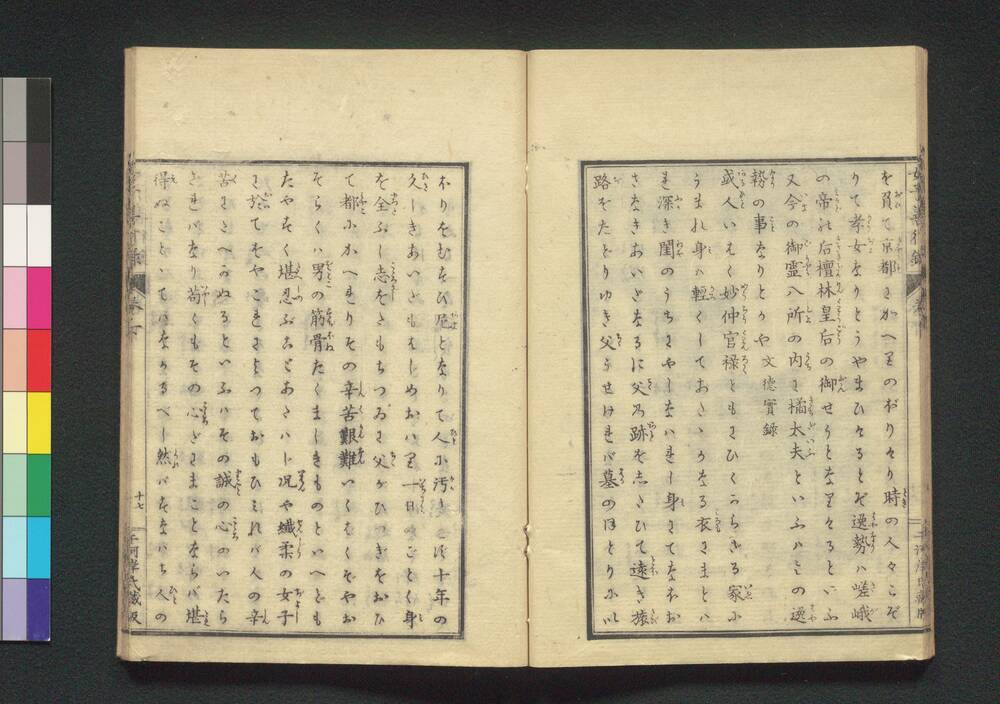 を負て京都にかへりのぼりけり時の人々こぞ
りて孝女なりとうやまひけるとぞ逸勢ハ嵯峨
の帝の后檀林皇后の御せうとなりけるといふ
又今の御霊八所の内に橘太夫といふハこの逸
勢の事なりとかや 文徳實録
或人いはく妙仲官禄ともにひくからざる家に
うまれ身ハ輕くしておろかなる衣をまとハ
れ深き閨のうちにやしなはれし身にてなほお
さなきあいだなるに父の跡をしたひて遠き旅
路をたどりゆき父うせければ墓のほとりにい
ほりをむすび尼となりて人に汚されず十年の
久しきあいだもはじめおハり一日のごとく身
を全ふし志をたもちつゐに父がひつぎをおひ
て都にかへりその辛苦艱難いくそばくぞやお
そらくハ男の筋骨たくましきものといへども
たやすく堪忍ぶことあたハじ况や繊柔の女子
に於てをやこれによつておもひみれバ人の辛
苦にたへかぬるといふハその誠の心のいたら
ざればなり苟くもその心ざしまことならバ堪
得ぬことハなかるべし然バすなはち人の
十七
千河岸氏蔵版